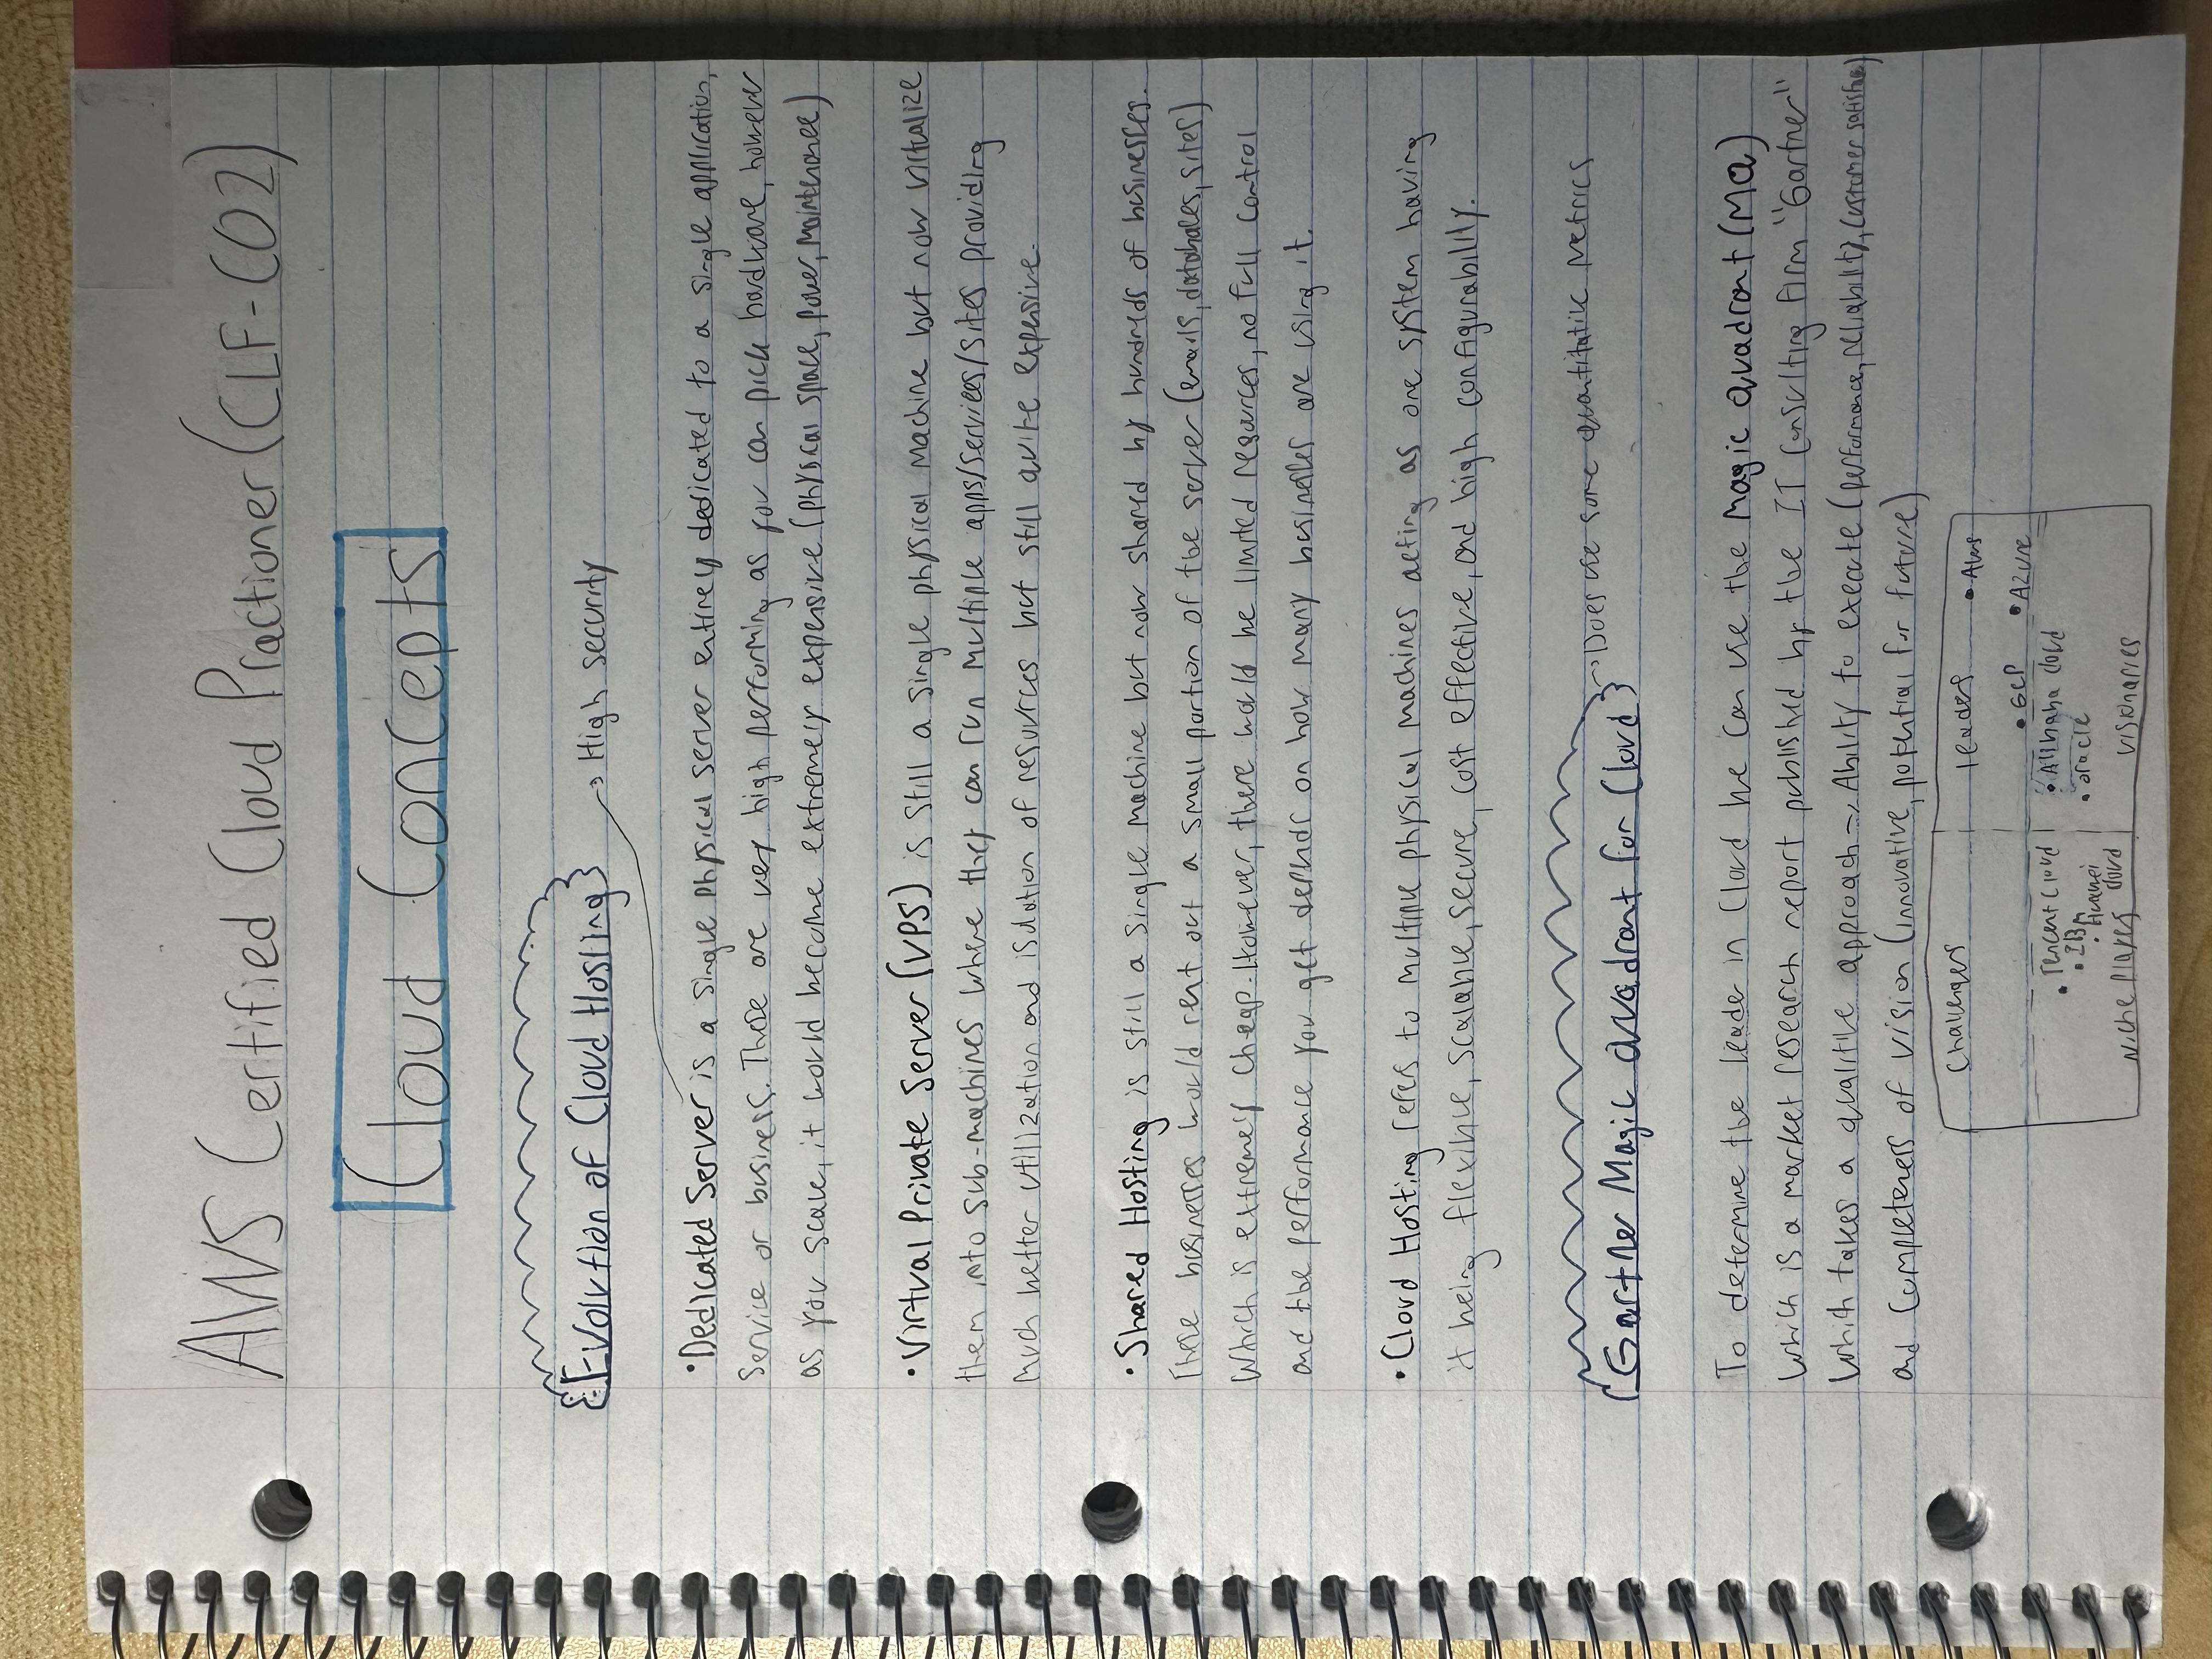 AWS Certified Cloud Practioner (CLF-C02)
Cloud Concepts
Evolution of Cloud Hosting
→ High security
• Dedicated Server is a single physical server entirely dedicated to a single application,
service or business. These are very high performing as you can pick hardware, however
as you scale, it would become extremely expensive (physical space, power, maintenance)
• Virtual Private Server (VPS) is still a single physical machine but now virtualize
them into sub-machines where they can run multiple apps/services/sites providing
much better utilization and isolation of resources but still quite expensive.
• Shared Hosting is still a single machine but now shared by hundreds of businesses.
These businesses would rent out a small portion of the server (emails, databases, sites)
which is extremely cheap. However, there would be limited resources, no full control
and the performance you get depends on how many businesses are using it.
• Cloud Hosting refers to multiple physical machines acting as one system having
it being flexible, scalable, secure, cost effective, and high configurability.
→ Does use some quantitative metrics
Gartner Magic Quadrant for Cloud
To determine the leader in Cloud we can use the Magic Quadrant (MQ)
which is a market research report published by the IT consulting firm "Gartner"
which takes a qualitive approach → Ability to execute (performance, reliability, customer
and completeness of vision (innovative, potential for future)
Challengers
Leaders
• AWS
• GCP • Azure
• Tencent Cloud
• IBM
• Huawei
Cloud
Niche Players
• Alibaba Cloud
• Oracle
Visionaries